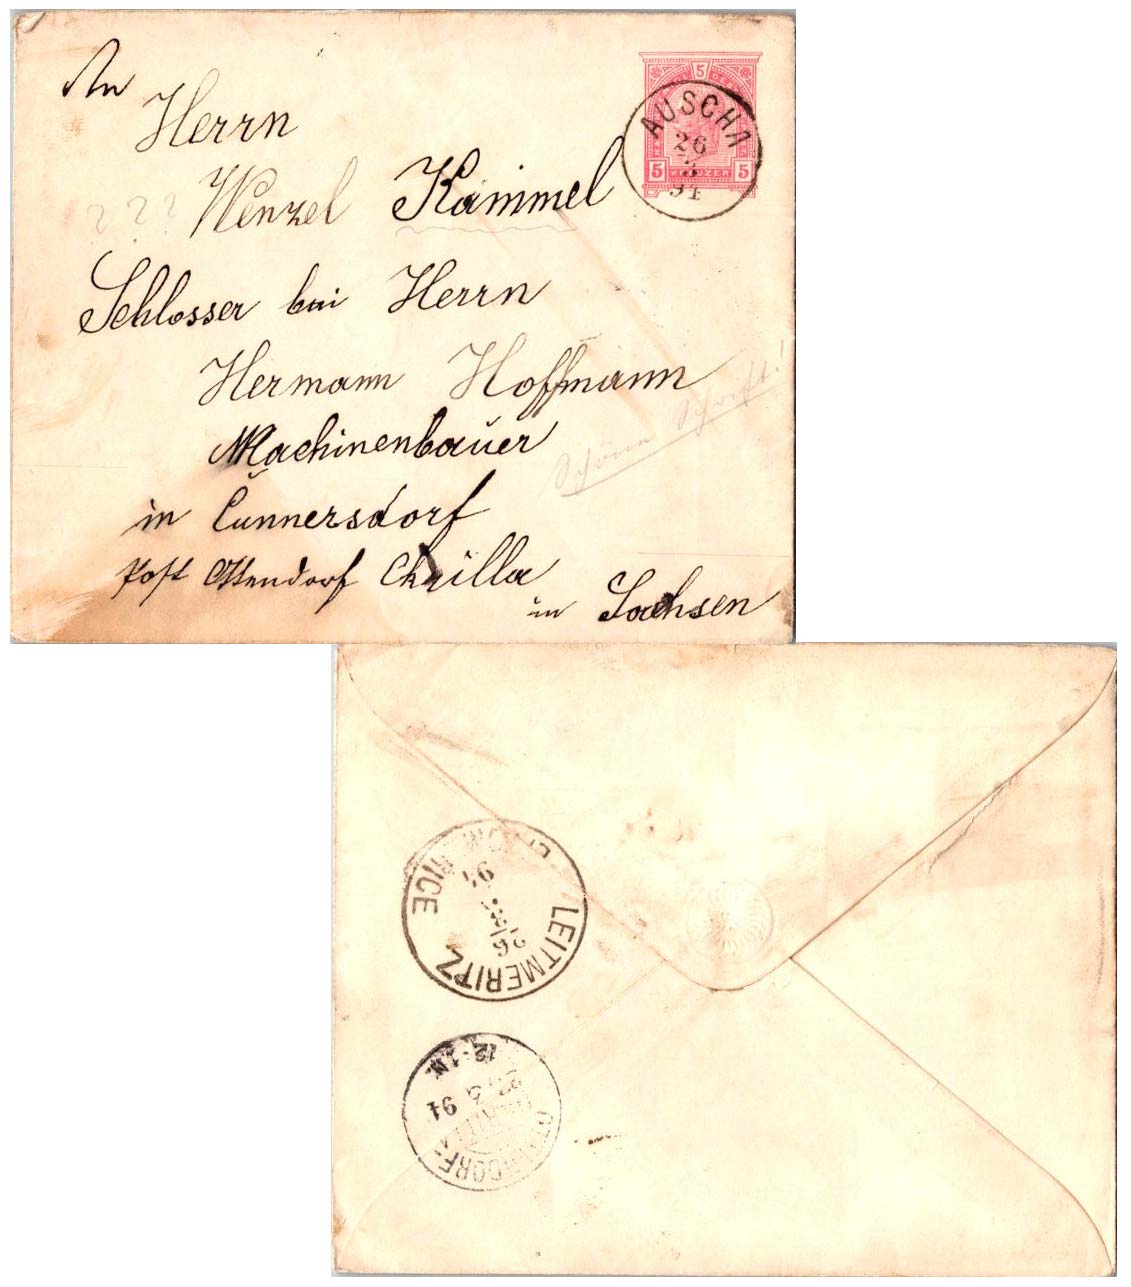 An
Herrn
Wenzel Kammel
? ? ?
Schlosser bei Herrn
Hermann Hoffmann
Machinenbauer
in Cunnersdorf
Post Ottendorf Okrilla
in Sachsen
Schöne Schrift!
5
5 KREUZER 5
AUSCHA
26
5
94
LEITMERITZ
26
5
94
27. 5 94
12-1N.